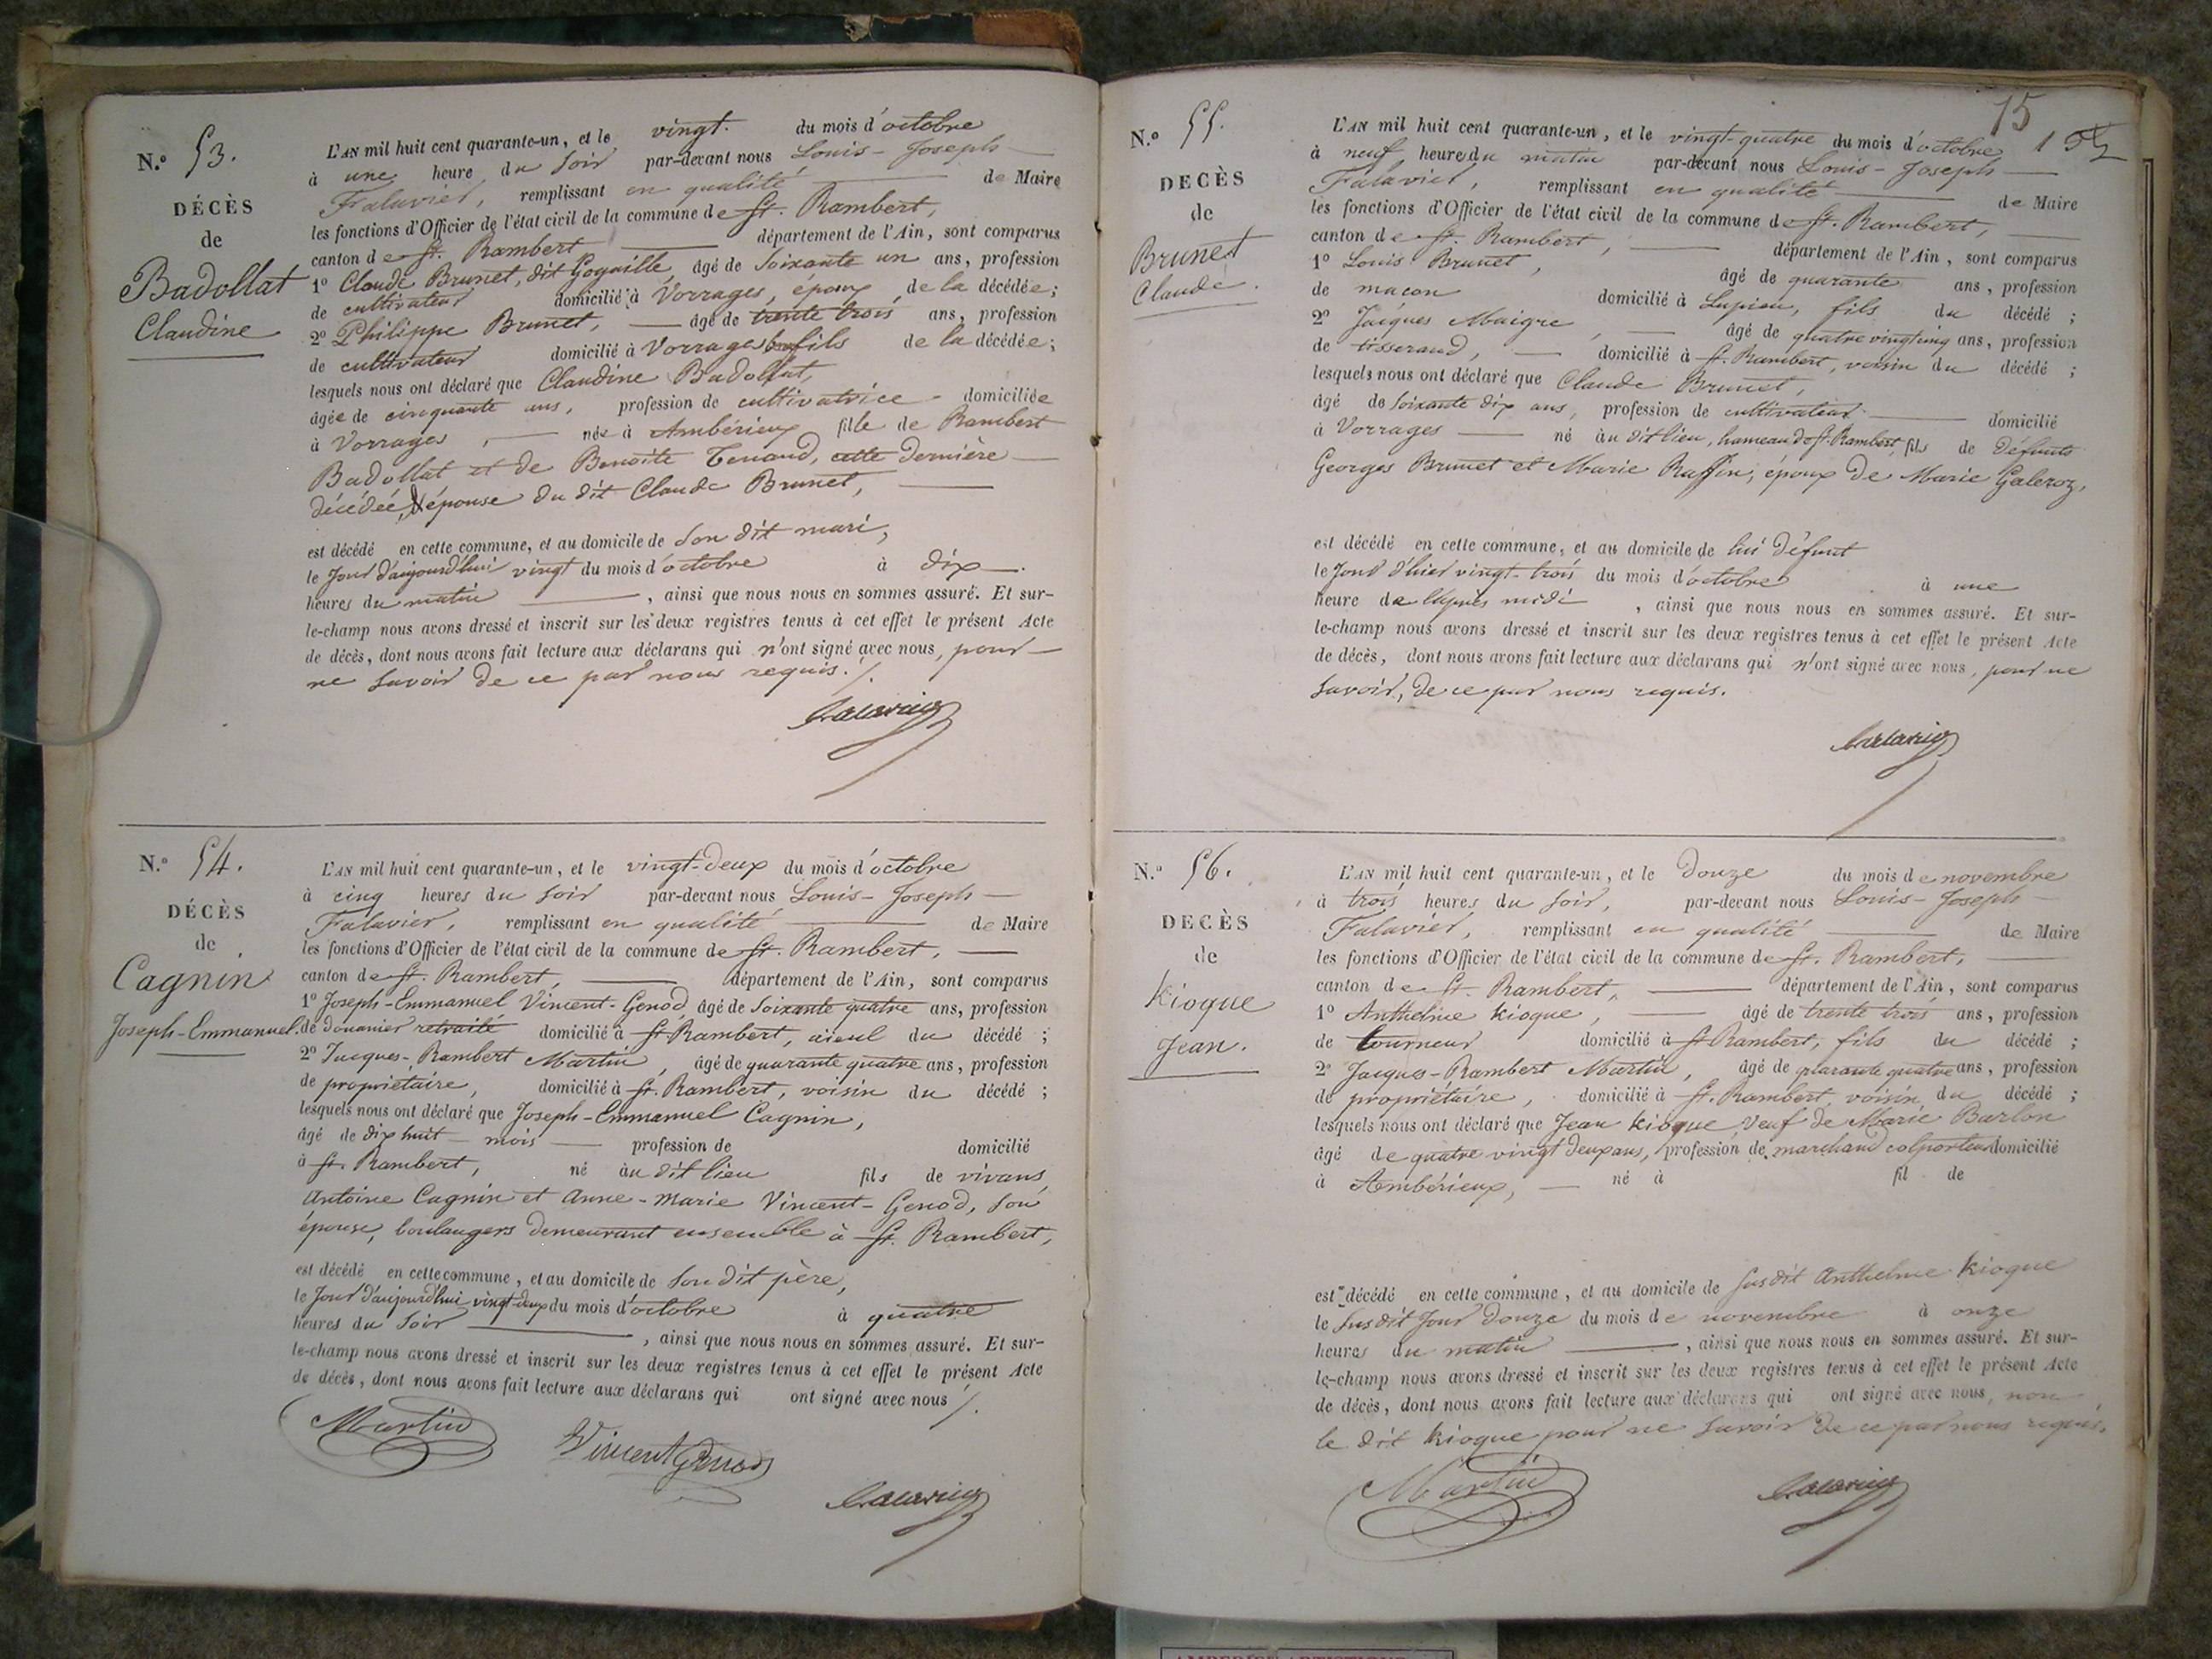 N.º 53.
DÉCÈS
de
Badollat
Claudine
L'AN mil huit cent quarante-un, et le vingt. du mois d'octobre
à une heure du soir par-devant nous Louis-Joseph
Falavier, remplissant en qualité de Maire
les fonctions d'Officier de l'état civil de la commune de St. Rambert,
canton de St. Rambert département de l'Ain, sont comparus
1º Claude Brunet, dit Goguille, âgé de soixante un ans, profession
de cultivateur domicilié à Vorrages, époux de la décédée;
2º Philippe Brunet, âgé de trente trois ans, profession
de cultivateur domicilié à Vorrages fils de la décédée;
lesquels nous ont déclaré que Claudine Badollat,
âgée de cinquante ans, profession de cultivatrice domiciliée
à Vorrages, née à Ambérieux fille de Rambert
Badollat et de Benoite Tenand, cette dernière
décédée, épouse du dit Claude Brunet,
est décédé en cette commune, et au domicile de son dit mari,
le jour d'aujourd'hui vingt du mois d'octobre à dix
heures du matin, ainsi que nous nous en sommes assuré. Et sur-
le-champ nous avons dressé et inscrit sur les deux registres tenus à cet effet le présent Acte
de décès, dont nous avons fait lecture aux déclarans qui n'ont signé avec nous, pour
ne savoir de ce par nous requis./.
Falavier
N.º 54.
DÉCÈS
de
Cagnin
Joseph-Emmanuel.
L'AN mil huit cent quarante-un, et le vingt-deux du mois d'octobre
à cinq heures du soir par-devant nous Louis-Joseph
Falavier, remplissant en qualité de Maire
les fonctions d'Officier de l'état civil de la commune de St. Rambert,
canton de St. Rambert, département de l'Ain, sont comparus
1º Joseph-Emmanuel Vincent-Genod, âgé de soixante quatre ans, profession
de douanier retraité domicilié à St. Rambert, aieul du décédé;
2º Jacques-Rambert Martin, âgé de quarante quatre ans, profession
de propriétaire, domicilié à St. Rambert, voisin du décédé;
lesquels nous ont déclaré que Joseph-Emmanuel Cagnin,
âgé de dix huit mois profession de domicilié
à St. Rambert, né au dit lieu fils de vivans
Antoine Cagnin et Anne-Marie Vincent-Genod, son
épouse, boulangers demeurant ensemble à St. Rambert,
est décédé en cette commune, et au domicile de son dit père,
le jour d'aujourd'hui vingt-deux du mois d'octobre à quatre
heures du soir, ainsi que nous nous en sommes assuré. Et sur-
le-champ nous avons dressé et inscrit sur les deux registres tenus à cet effet le présent Acte
de décès, dont nous avons fait lecture aux déclarans qui ont signé avec nous /.
Martin
Vincent Genod
Falavier
15
N.º 55.
DECÈS
de
Brunet
Claude.
L'AN mil huit cent quarante-un, et le vingt-quatre du mois d'octobre
à neuf heure du matin par-devant nous Louis-Joseph
Falavier, remplissant en qualité de Maire
les fonctions d'Officier de l'état civil de la commune de St. Rambert,
canton de St. Rambert, département de l'Ain, sont comparus
1º Louis Brunet, âgé de quarante ans, profession
de macon domicilié à Lupieu, fils du décédé;
2º Jacques Maigre, âgé de quatre vingt cinq ans, profession
de tisserand, domicilié à St. Rambert, voisin du décédé;
lesquels nous ont déclaré que Claude Brunet,
âgé de soixante dix ans, profession de cultivateur domicilié
à Vorrages né au dit lieu, hameau de St. Rambert, fils de défunts
Georges Brunet et Marie Raffin, époux de Marie Galeroz,
est décédé en cette commune, et au domicile de lui défunt
le jour d'hier vingt-trois du mois d'octobre à une
heure de l'après midi, ainsi que nous nous en sommes assuré. Et sur-
le-champ nous avons dressé et inscrit sur les deux registres tenus à cet effet le présent Acte
de décès, dont nous avons fait lecture aux déclarans qui n'ont signé avec nous, pour ne
savoir, de ce par nous requis.
Falavier
N.º 56.
DECÈS
de
Kioque
Jean.
L'AN mil huit cent quarante-un, et le douze du mois de novembre
à trois heures du soir, par-devant nous Louis-Joseph
Falavier, remplissant en qualité de Maire
les fonctions d'Officier de l'état civil de la commune de St. Rambert,
canton de St. Rambert, département de l'Ain, sont comparus
1º Anthelme Kioque, âgé de trente trois ans, profession
de tourneur domicilié à St Rambert, fils du décédé;
2º Jacques-Rambert Martin, âgé de quarante quatre ans, profession
de propriétaire, domicilié à St. Rambert, voisin du décédé;
lesquels nous ont déclaré que Jean Kioque veuf de Marie Barlon
âgé de quatre vingt deux ans, profession de marchand colporteur domicilié
à Ambérieux, né à fil de
est décédé en cette commune, et au domicile de susdit Anthelme Kioque
le susdit jour douze du mois de novembre à onze
heures du matin, ainsi que nous nous en sommes assuré. Et sur-
le-champ nous avons dressé et inscrit sur les deux registres tenus à cet effet le présent Acte
de décès, dont nous avons fait lecture aux déclarans qui ont signé avec nous, non
le dit Kioque pour ne savoir de ce par nous requis.
Martin
Falavier